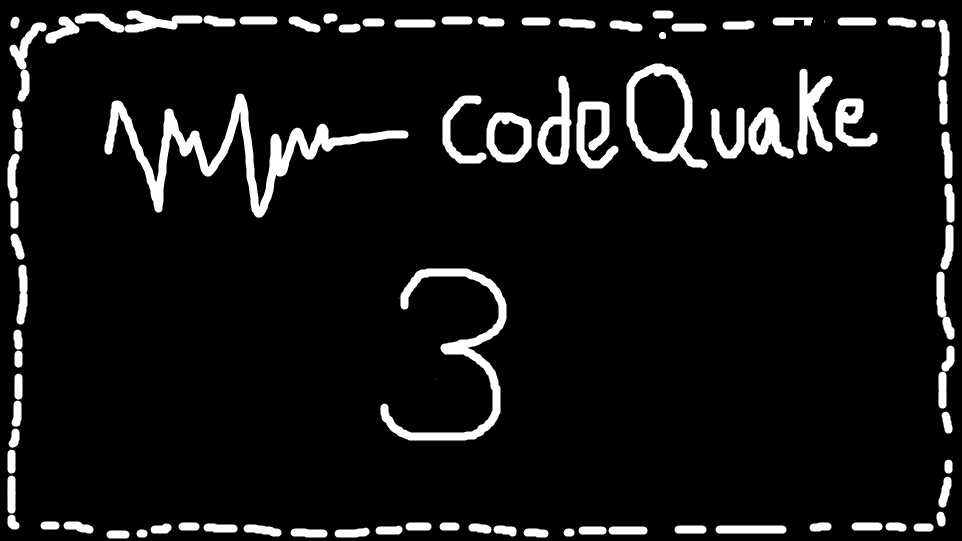 codeQuake
3